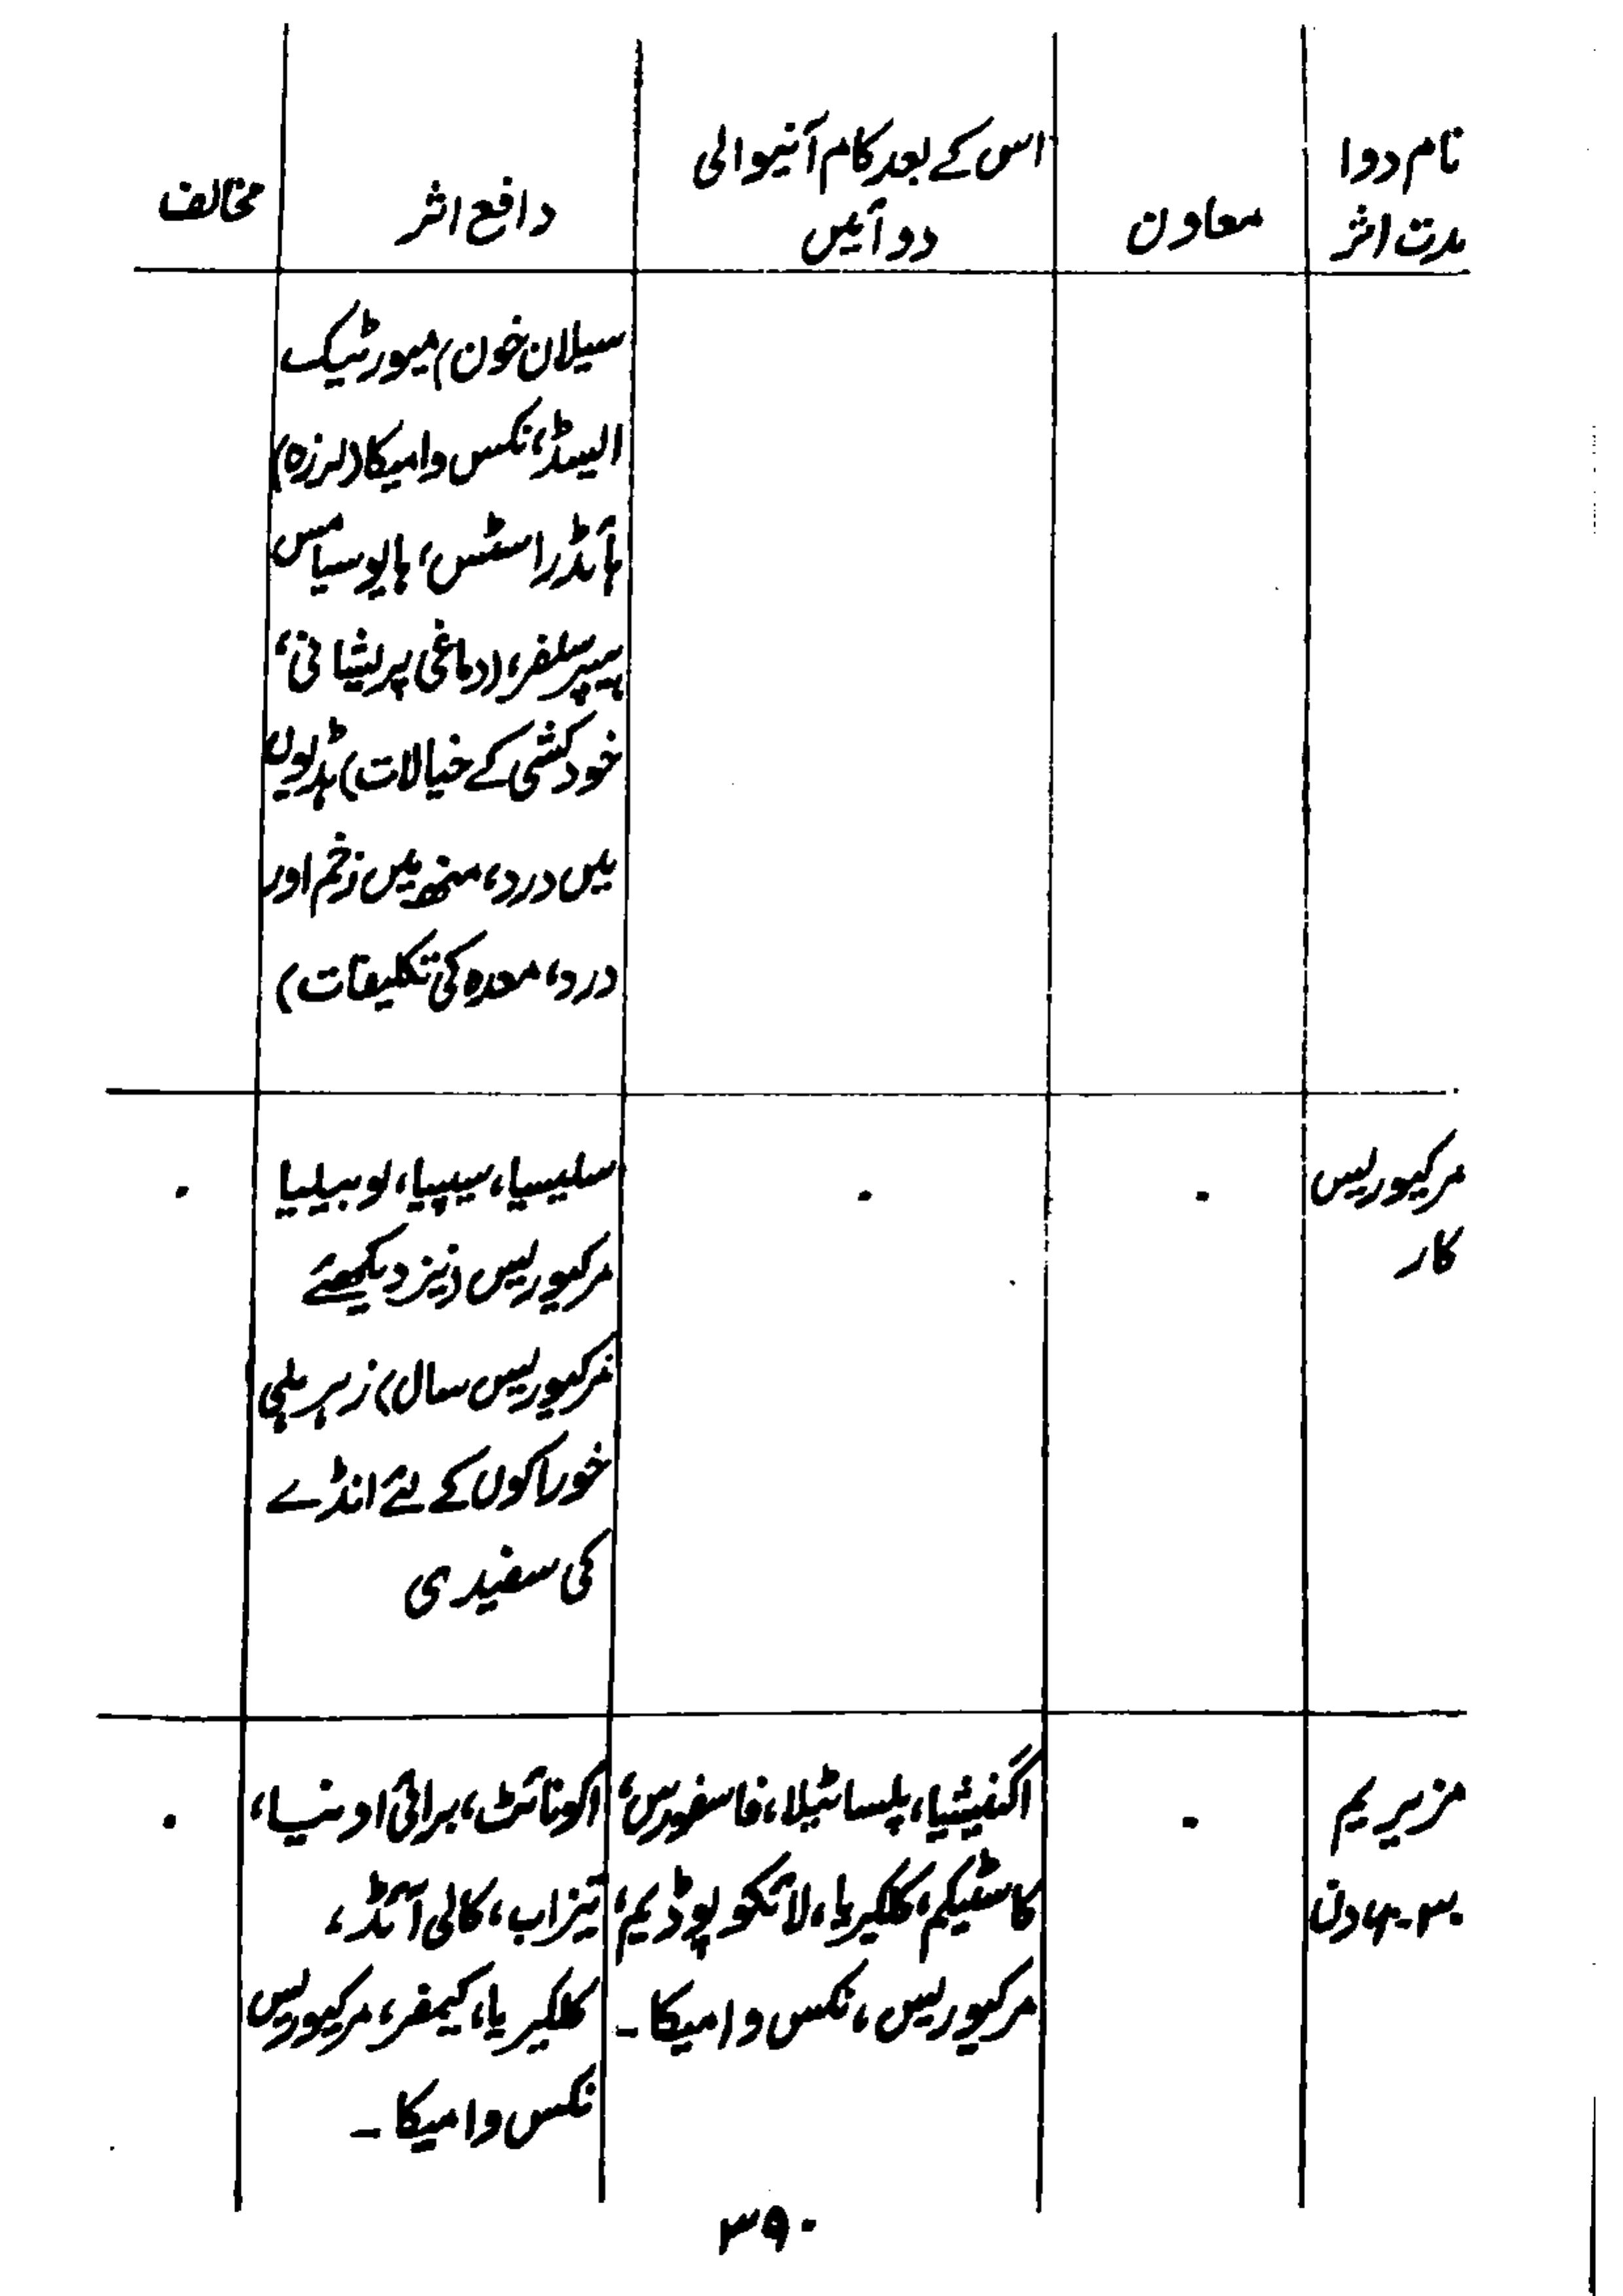 نام دوا
مدت اثر
معاون
اس کے بعد کام آنیوالی
دوائیں
دافع اثر
مخالف
سیلان خون) میورٹیک
الیسڈ، نکس وامیکا (لرزہ)
ہائڈراسٹس، ہایوسیامس
ہیپر سلفر، (دماغی پریشانی،
خودکشی کے خیالات) ہڈیوں
میں درد، منھ میں زخم اور
درد، معدہ کی تکلیفات)
مرکیوریس
کار
۰
۰
سلیسیا، سیپیا، لوبیلیا
مرکیوریس (نیز دیکھئے
مرکیوریس سال) زہریلی
خوراکوں کے لئے انڈے
کی سفیدی
۰
مزیریم
۳۰-۶۰ دن
۰
اگنیشیا، پلساٹیلا، فاسفورس،
کاسٹیکم، کلکیریا، لائکوپوڈیم،
مرکیوریس، نکس وامیکا۔
اکونائٹ، برائی اونیا،
تیزاب، کالی آئڈ،
کلکیریا، کیمفر، مرکیوریس
نکس وامیکا۔
۰
۳۹۰